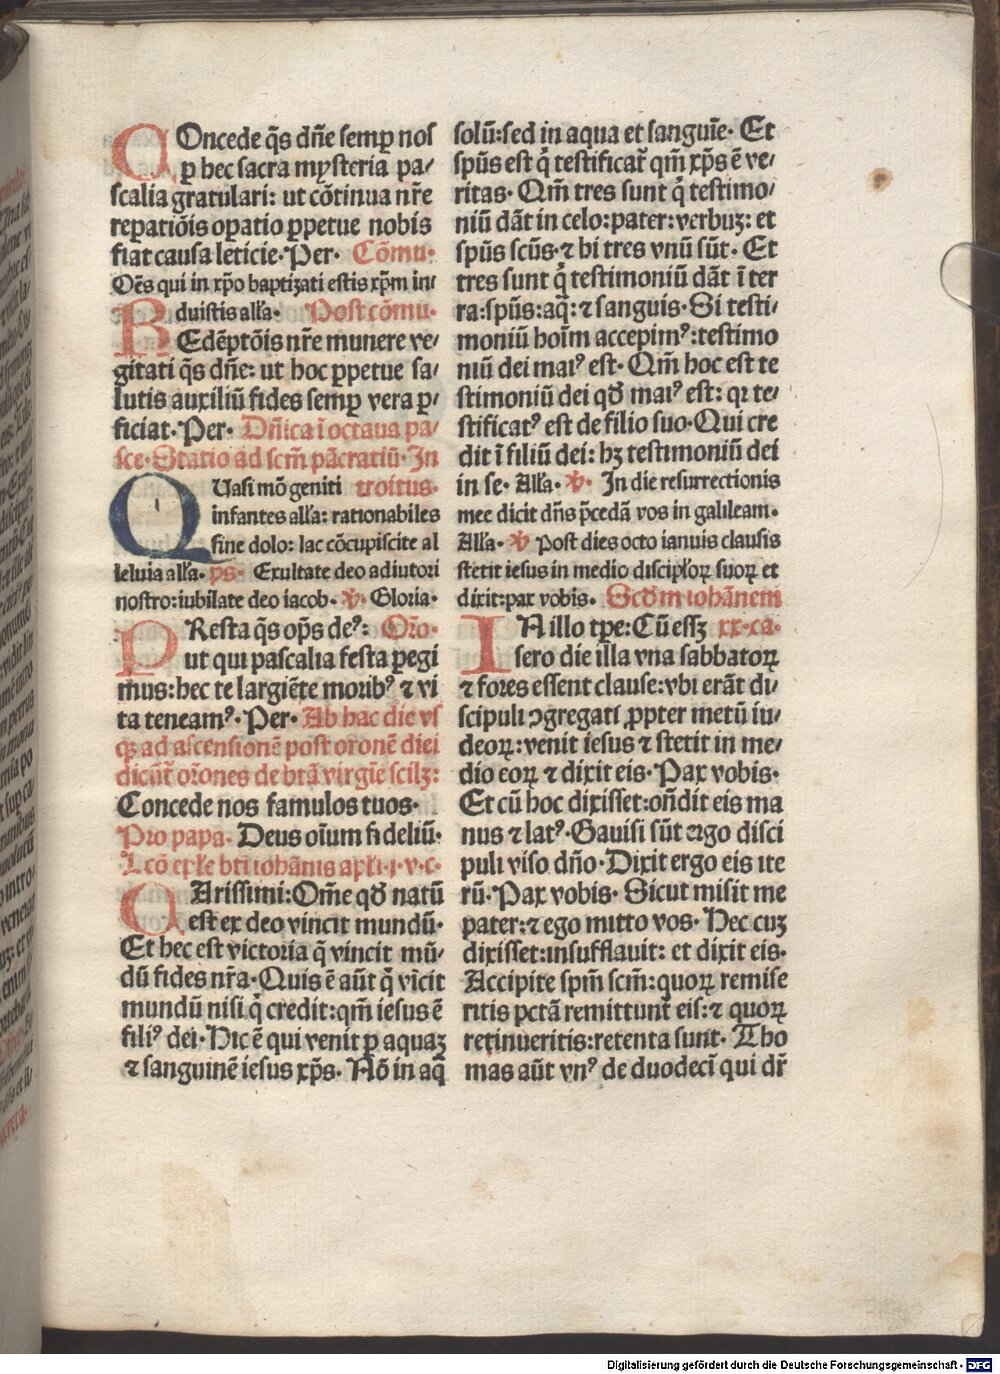 COncede q̄s dn̄e semꝑ nos
ꝑ hec sacra mysteria pa⸗
scalia gratulari: ut cōtinua nr̄e
reꝑatiōis oꝑatio ꝑpetue nobis
fiat causa leticie. Per. Cōmu.
Oēs qui in xp̄o baptizati estis xp̄m in⸗
duistis all'a. Post cōmu.
REdēptōis nr̄e munere ve⸗
gitati q̄s dn̄e: ut hoc ꝓpetue sa⸗
lutis auxiliū fides semꝑ vera ꝓ⸗
ficiat. Per. Dn̄ica ī octaua pa⸗
sce. Statio ad scm̄ pācratiū. In
QUasi mō geniti troitus.
infantes all'a: rationabiles
sine dolo: lac cōcupiscite al
leluia all'a. ps. Exultate deo adiutori
nostro: iubilate deo iacob. ℣. Gloria.
PResta q̄s op̄s deꝰ: Or̄o.
ut qui pascalia festa ꝑegi
mus: hec te largiēte moribꝰ ⁊ vi
ta teneamꝰ. Per. Ab hac die vs
qꝫ ad ascensionē post oronē diei
dicūt̄ or̄ones de btā virgīe scilꝫ:
Concede nos famulos tuos.
Pro papa. Deus oīum fideliū.
Lcō ep̄le bt̄i iohānis apl̄i. i. v. c.
CArissimi: Om̄e qđ natū
est ex deo vincit mundū.
Et hec est victoria q̄ vincit mū⸗
dū fides nr̄a. Quis ē aūt q̇ vīcit
mundū nisi q̇ credit: qm̄ iesus ē
filiꝰ dei. Hic ē qui venit ꝑ aquaꝫ
⁊ sanguinē iesus xp̄s. Nō in aq̄
solū: sed in aqua et sanguīe. Et
sp̄us est q̇ testificat̄ qm̄ xp̄s ē ve⸗
ritas. Qm̄ tres sunt q̇ testimo⸗
niū dāt in celo: pater: verbuꝫ: et
sp̄us scūs. ⁊ hi tres vnū sūt. Et
tres sunt q̇ testimoniū dāt ī ter
ra: sp̄us: aq̄: ⁊ sanguis. Si testi⸗
moniū hoīm accepimꝰ: testimo
niū dei maiꝰ est. Qm̄ hoc est te
stimoniū dei qđ maiꝰ est: qꝛ te⸗
stificatꝰ est de filio suo. Qui cre
dit ī filiū dei: hꝫ testimoniū dei
in se. All'a. ℣. In die resurrectionis
mee dicit dn̄s p̄cedā vos in galileam.
All'a. ℣ Post dies octo ianuis clausis
stetit iesus in medio discipl'oꝝ suoꝝ et
dixit: pax vobis. Scđm iohānem
IN illo tp̄e: Cū essꝫ xx. ca.
sero die illa vna sabbatoꝝ
⁊ fores essent clause: vbi erāt di⸗
scipuli ꝯgregati ꝓpter metū iu⸗
deoꝝ: venit iesus ⁊ stetit in me⸗
dio eoꝝ ⁊ dixit eis. Pax vobis.
Et cū hoc dixisset: on̄dit eis ma
nus ⁊ latꝰ. Gauisi sūt ergo disci
puli viso dn̄o. Dixit ergo eis ite
rū. Pax vobis. Sicut misit me
pater: ⁊ ego mitto vos. Hec cuꝫ
dixisset: insufflauit: et dixit eis.
Accipite spm̄ scm̄: quoꝝ remise
ritis pctā remittunt̄ eis: ⁊ quoꝝ
retinueritis: retenta sunt. Tho
mas aūt vnꝰ de duodeci qui dr̄
Digitalisierung gefördert durch die Deutsche Forschungsgemeinschaft - DFG